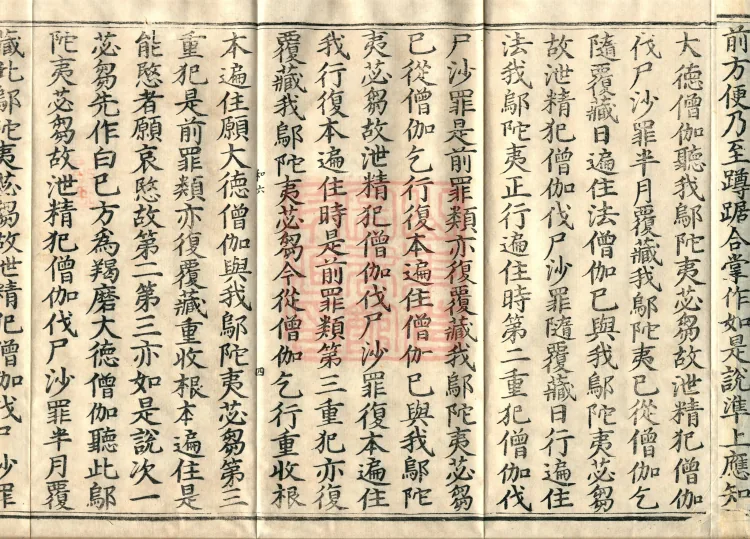 前方便乃至蹲踞合掌作如是說準上應知
大德僧伽聽我鄔陀夷苾芻故泄精犯僧伽
伐尸沙罪半月覆藏我鄔陀夷已從僧伽乞
隨覆藏日遍住法僧伽已與我鄔陀夷苾芻
故泄精犯僧伽伐尸沙罪隨覆藏日行遍住
法我鄔陀夷正行遍住時第二重犯僧伽伐
尸沙罪是前罪類亦復覆藏我鄔陀夷苾芻
已從僧伽乞行復本遍住僧伽已與我鄔陀
夷苾芻故泄精犯僧伽伐尸沙罪復本遍住
我行復本遍住時是前罪類第三重犯亦復
覆藏我鄔陀夷苾芻今從僧伽乞行重收根
和六 四
本遍住願大德僧伽與我鄔陀夷苾芻第三
重犯是前罪類亦復覆藏重收根本遍住是
能愍者願哀愍故第二第三亦如是說次一
苾芻先作白已方爲羯磨大德僧伽聽此鄔
陀夷苾芻故泄精犯僧伽伐尸沙罪半月覆
藏此鄔陀夷苾芻故泄精犯僧伽伐尸沙罪